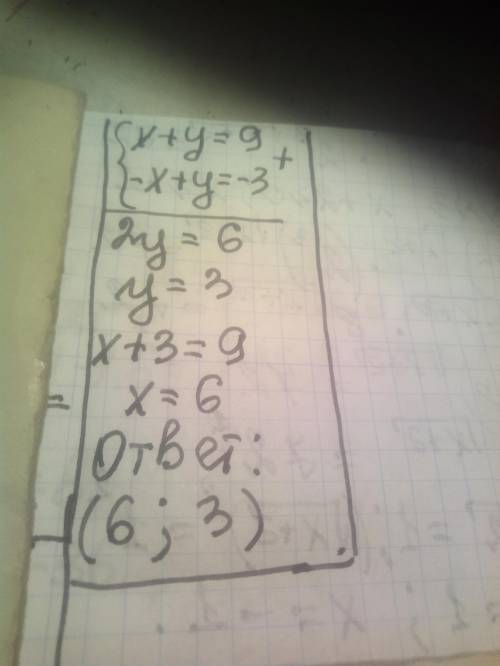 {x+y=9 +
{-x+y=-3
2y=6
y=3
x+3=9
x=6
Ответ:
(6; 3).